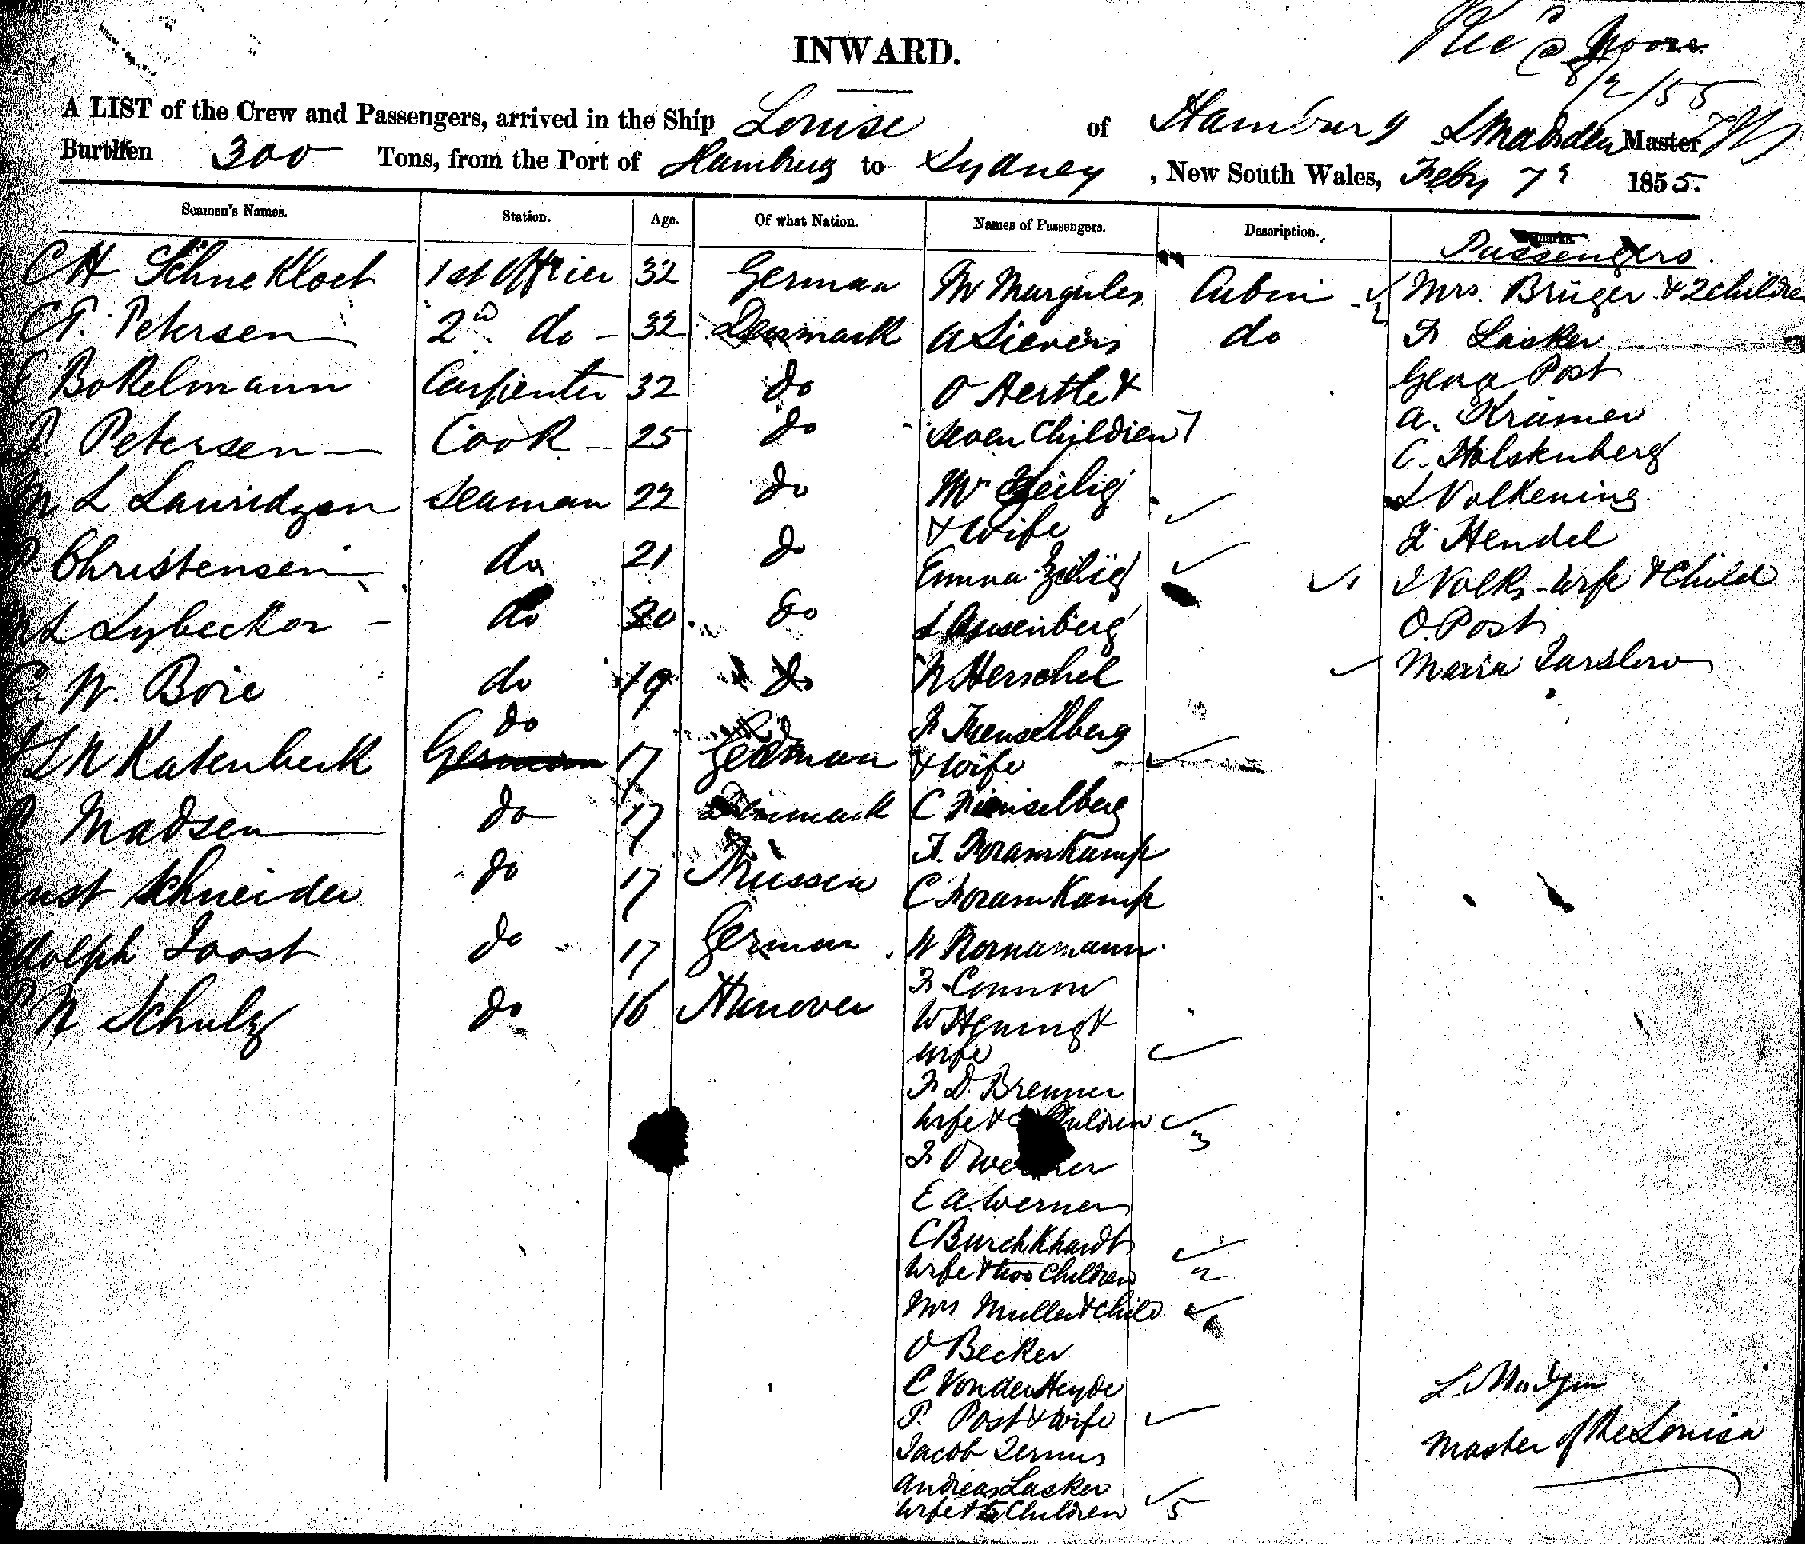 INWARD.
8/2/55
A LIST of the Crew and Passengers, arrived in the Ship Louise of Hamburg Master
Burthen 300 Tons, from the Port of Hamburg to Sydney, New South Wales, Feby 7 1855.
Seamen's Names. Station. Age. Of what Nation. Names of Passengers. Description. Passengers
C H Schnekloet 1st Officer 32 German Mr Margules Cabin
Petersen 2d do - 32 Denmark A Sievers do
Bokelmann Carpenter 32 do O Aerthe &
Petersen Cook - 25 do Seven Children 7
L Lauridzen Seaman 22 do Mr Zeilig
& Wife
Christensen do 21 do Emma Zeilig
Lybecker - do 20 do
W. Boie do 19 do N Herschel
do
Katenbeck German 17 German & Wife
Madsen do 17 Denmark C
F. Foramkamp
Schneider do 17 Prussia C Foramkamp
Joost do 17 German W Bornamann
Fr Connow
N Schulz do 16 Hanover W Hening &
wife
Fr D. Brenner
Wife & Children 3
Fr O
E A. Werner
C Burchkhardt
Wife & two Children 2
Mrs Muller & Child
O Becker
C Vonder Heyde
P. Post & Wife
Jacob
Andreas Lasker
Wife & Children 5
Mrs. Brüger & 2 children
Fr Lasker
Georg Post
A. Krämer
C. Holskenberg
L Volkening
Hendel
Volks - wife & Child
O. Post
Maria
Master of the Louisa